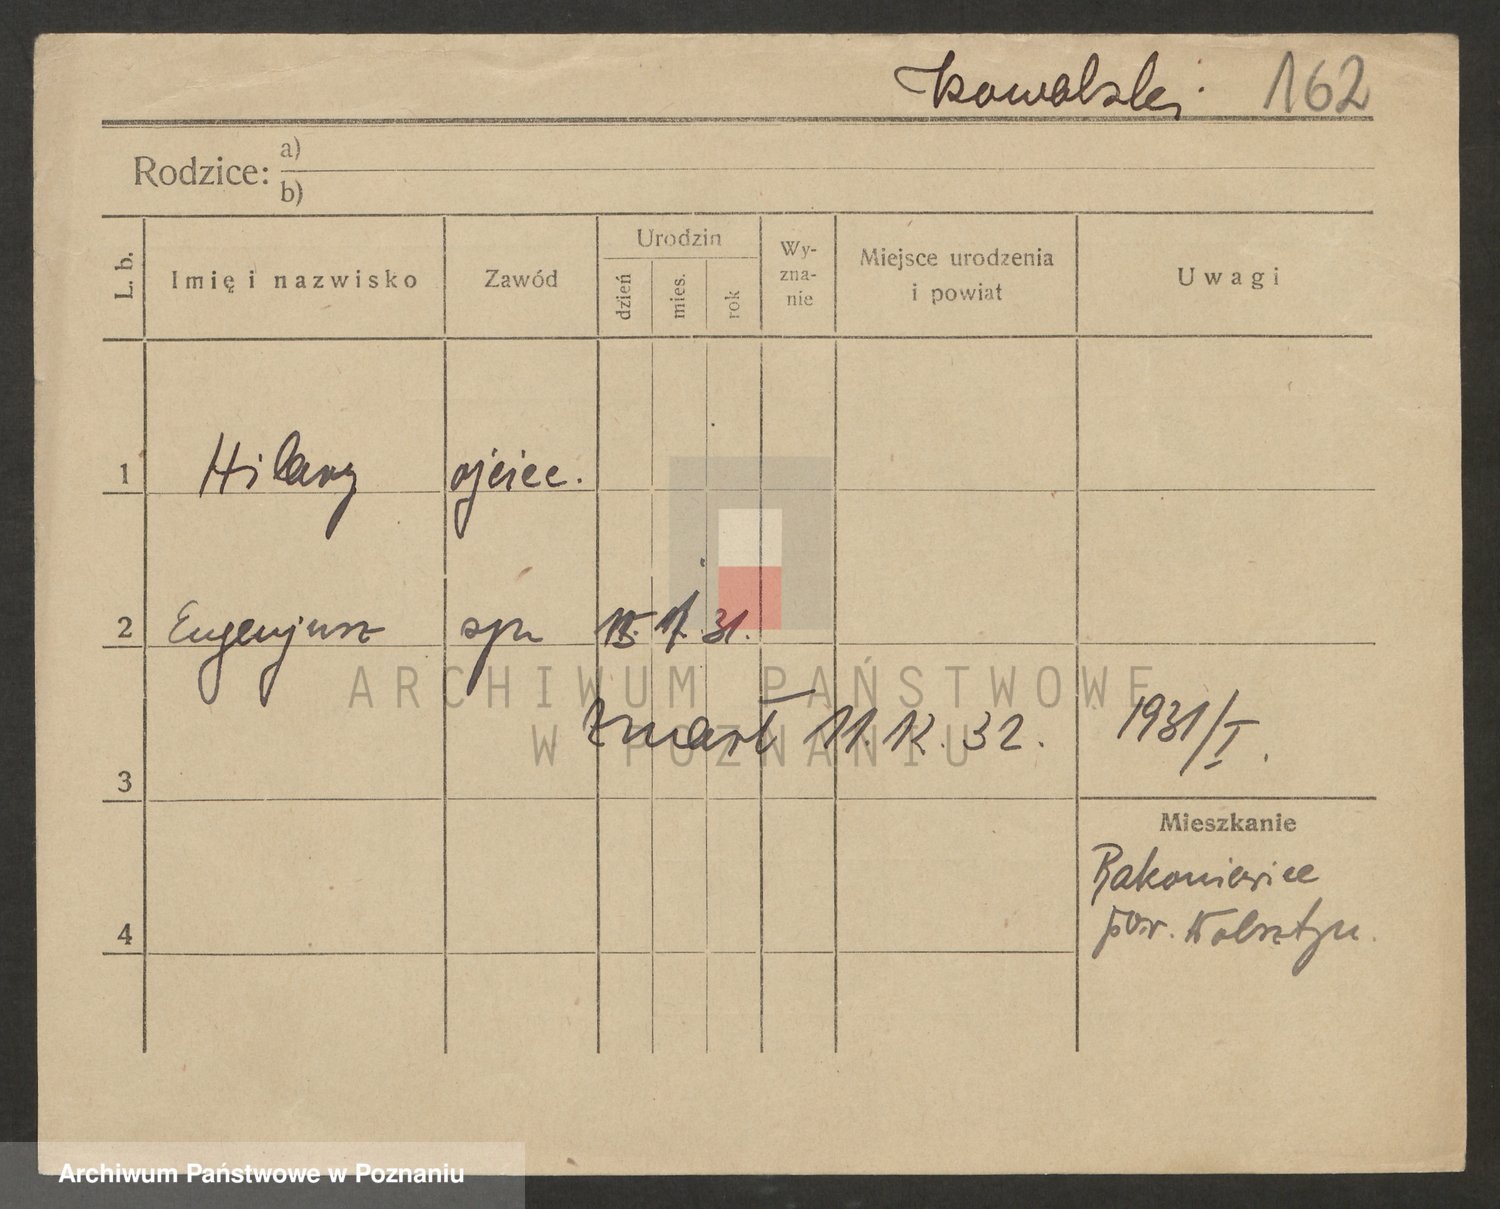 Kowalski 162
Rodzice: a)
b)
L. b.
Imię i nazwisko
Zawód
Urodzin
dzień
mies.
rok
Wy-
zna-
nie
Miejsce urodzenia
i powiat
Uwagi
1 Hilary ojciec.
2 Eugenjusz syn 31.
ARCHIWUM PAŃSTWOWE
W POZNANIU
zmarł 11. 32. 1931/I.
3
Mieszkanie
Rakoniewice
pow. Wolsztyn.
4
Archiwum Państwowe w Poznaniu